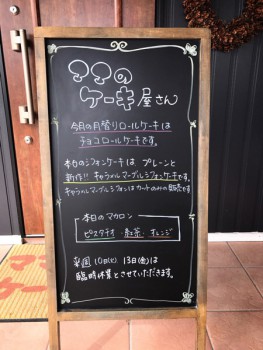 ママの
ケーキ屋さん
今月の月替りロールケーキは
チョコロールケーキです。
本日のシフォンケーキは プレーンと
新作!! キャラメルマーブルシフォンケーキです。
キャラメルマーブルシフォンはカットのみの販売です
本日のマカロン
ピスタチオ・紅茶・オレンジ
来週 10日(火) 13日(金)は
臨時休業とさせていただきます。